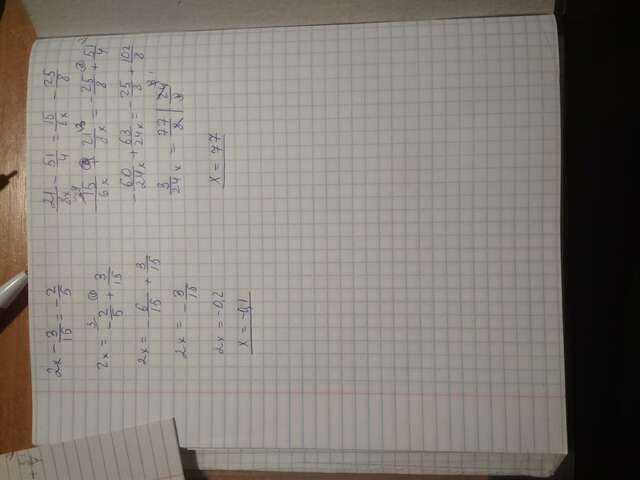 2x - 3/15 = - 2/5
2x = - 2/5 + 3/15
2x = - 6/15 + 3/15
2x = - 3/15
2x = -0,2
x = -0,1
21/8x - 51/4 = 15/6x - 25/8
- 15/6x + 21/8x = - 25/8 + 51/4
- 60/24x + 63/24x = - 25/8 + 102/8
3/24x = 77/8
x = 77